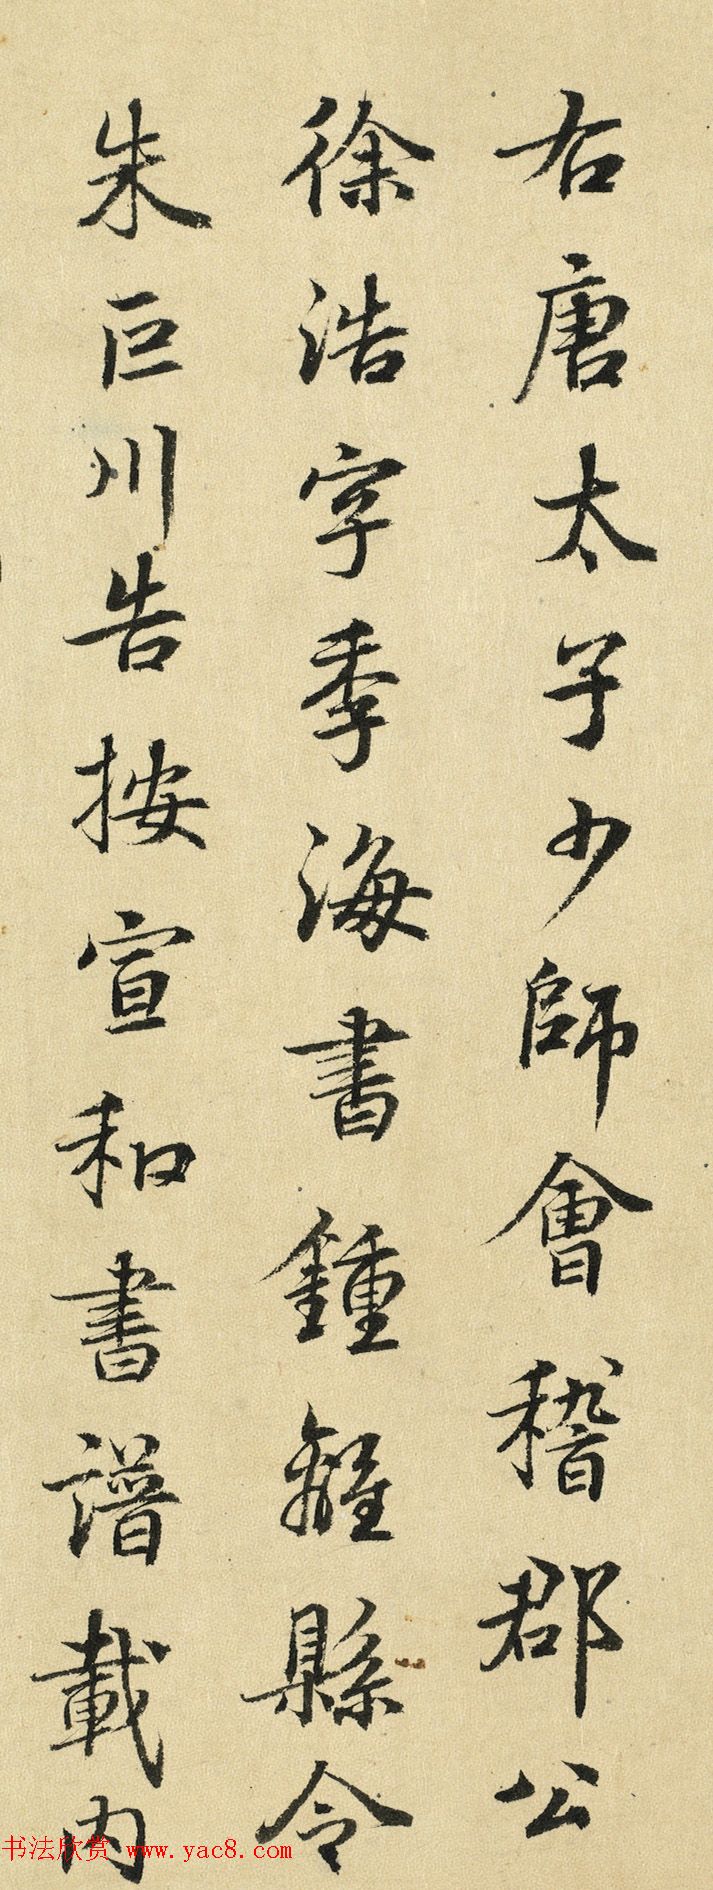 右唐太子少師會稽郡公
徐浩字季海書鍾離縣令
朱巨川告按宣和書譜載内
书法欣赏 www.yac8.com